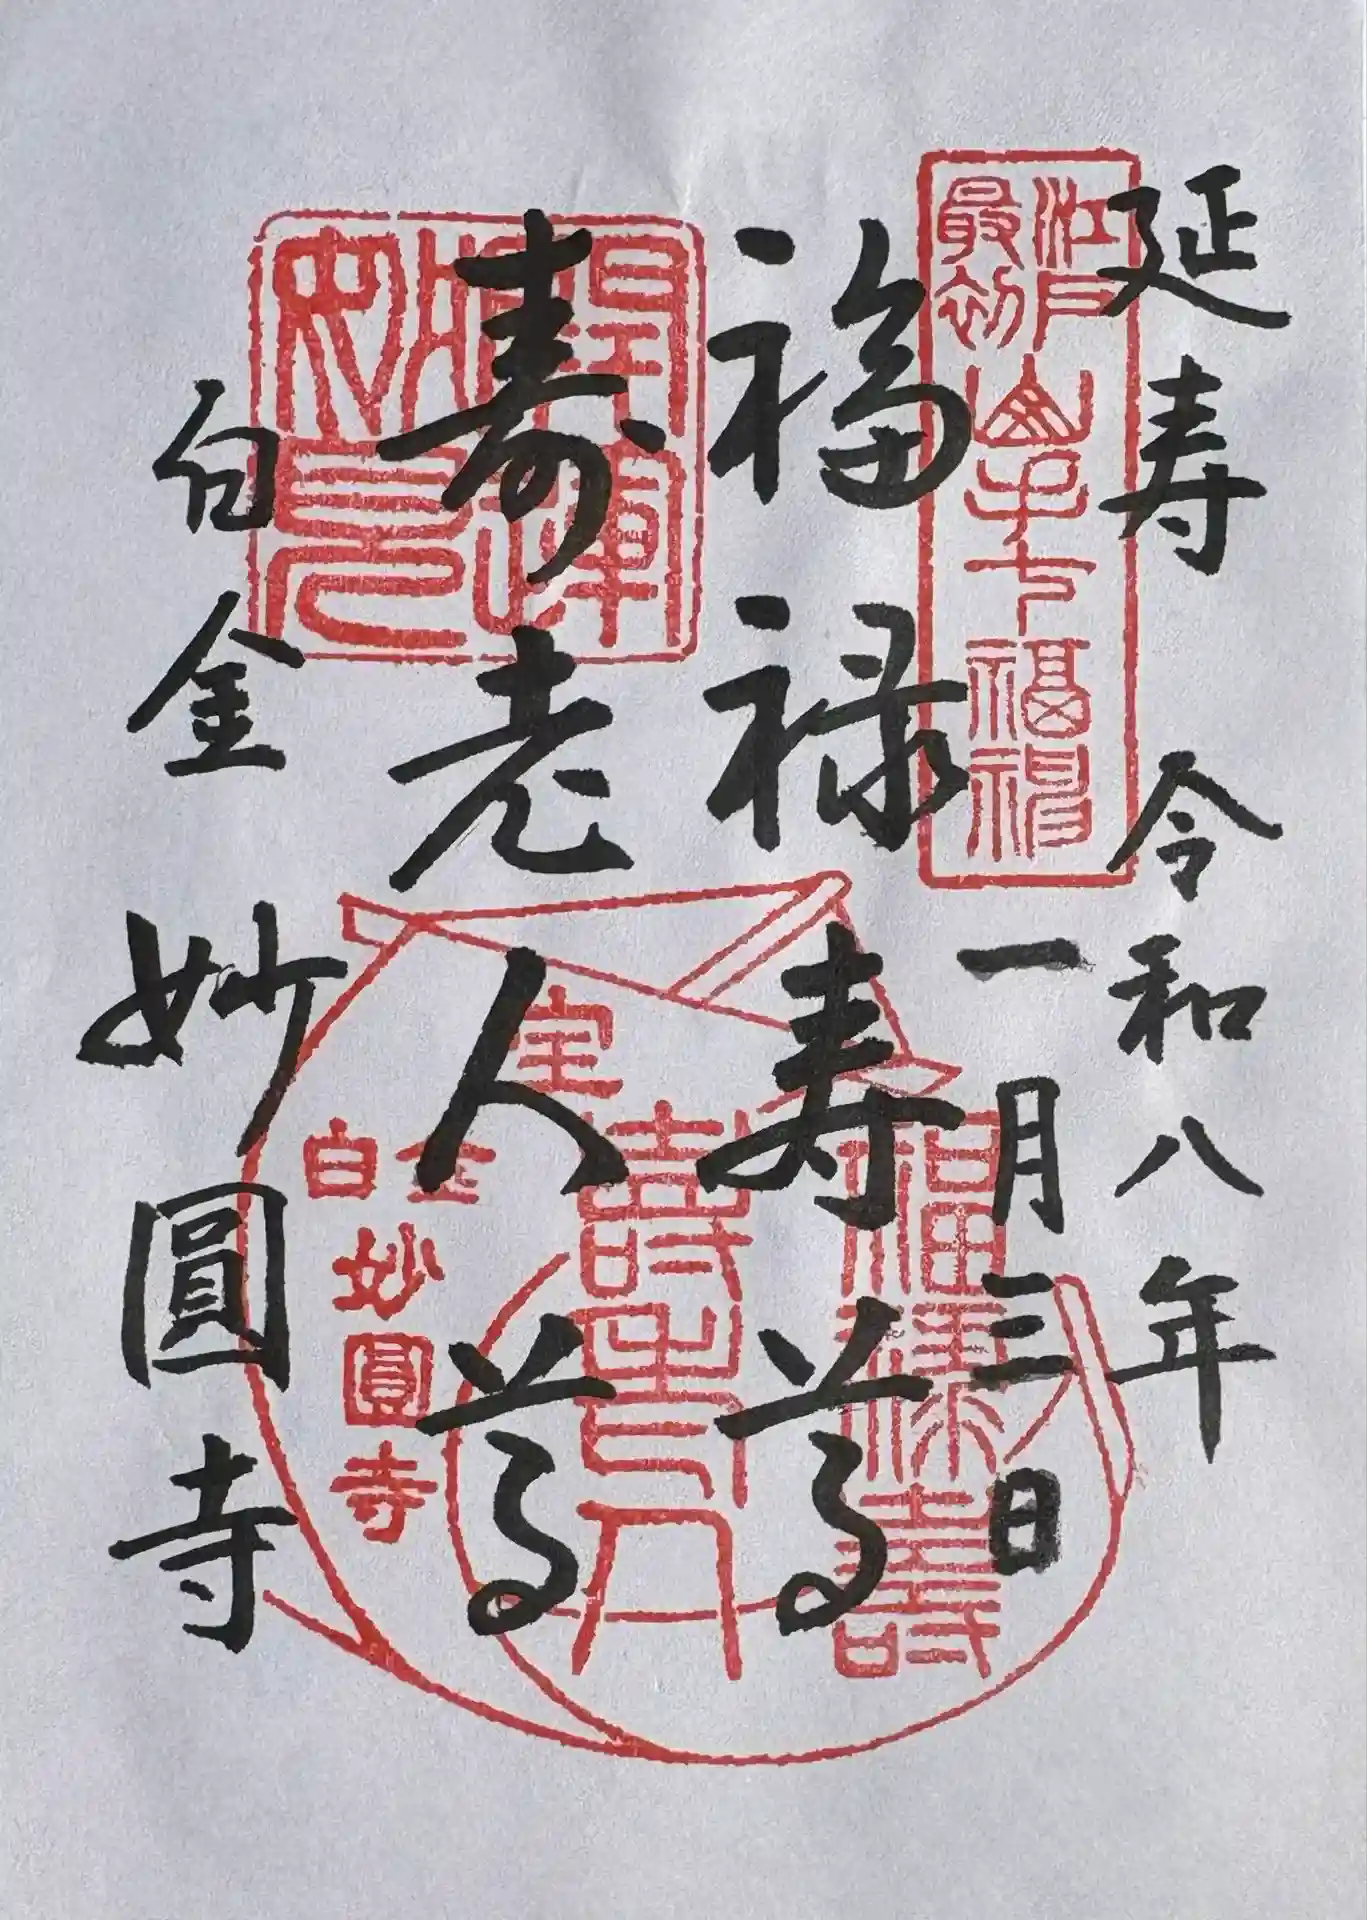 延寿 令和八年
一月三日
福禄寿尊
寿老人尊
白金 妙圓寺
江戸最初
山手七福神
福禄壽
壽老人
白金
妙圓寺